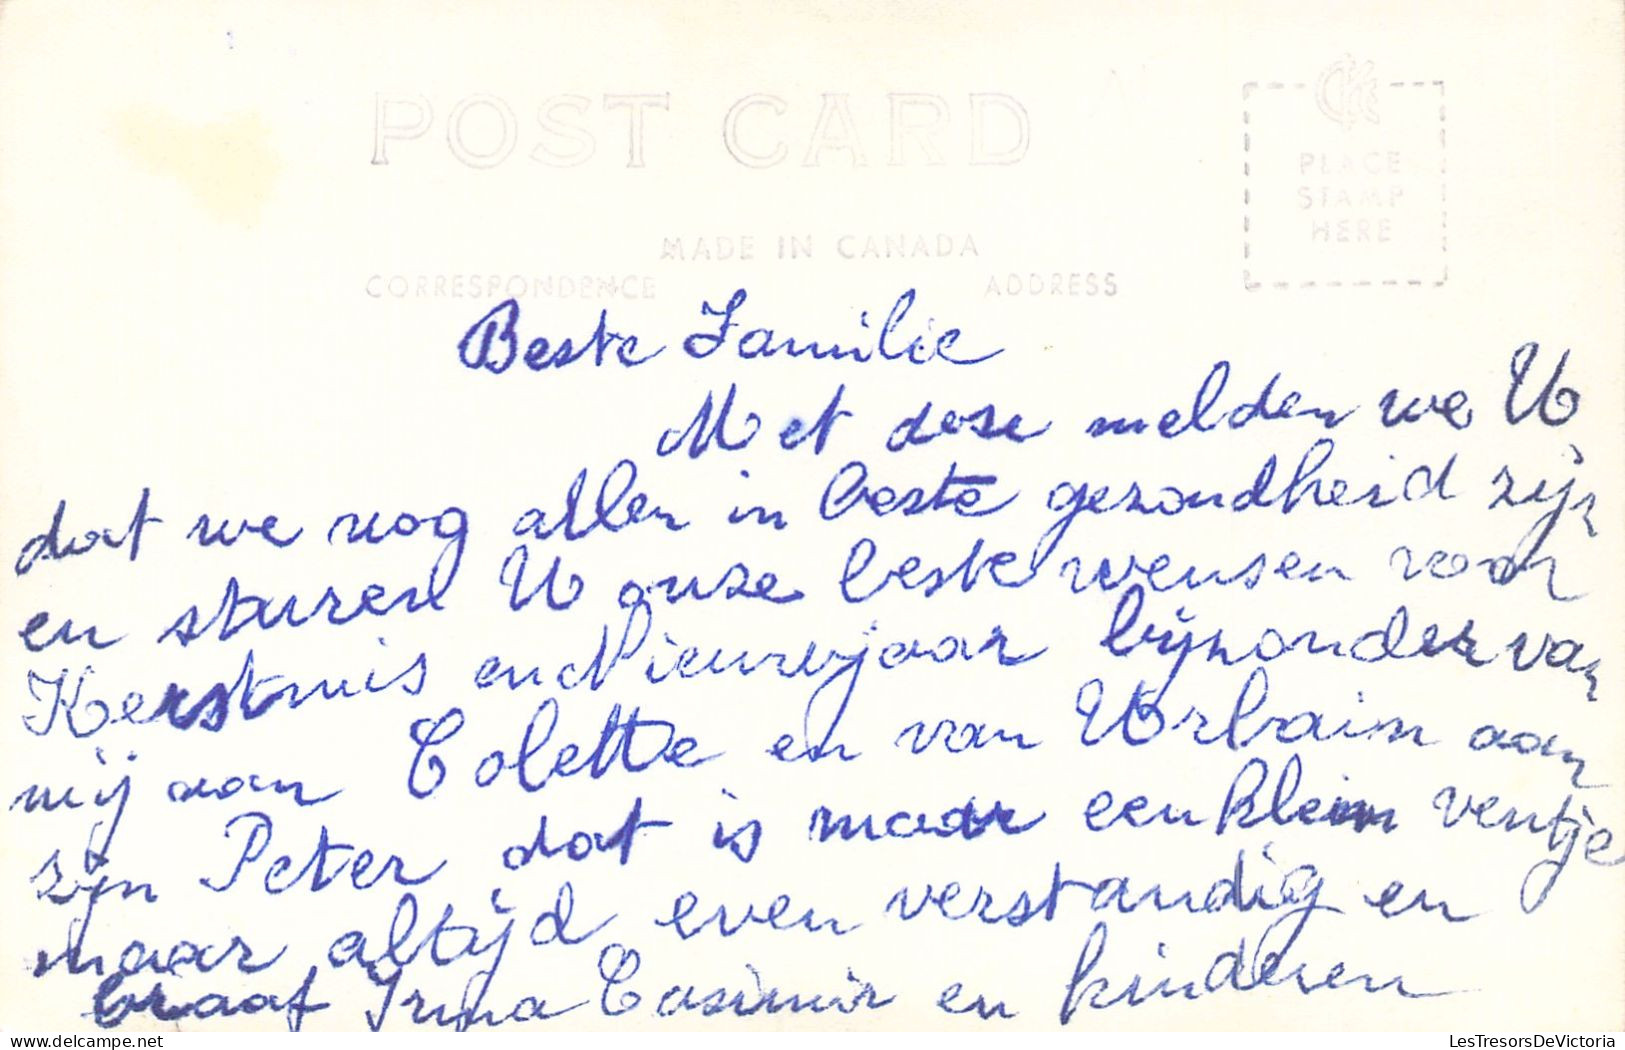 POST CARD
PLACE
STAMP
HERE
MADE IN CANADA
CORRESPONDENCE ADDRESS
Beste Familie
Met dese melden we U
dat we nog allen in beste gezondheid zijn
en sturen U onze beste wensen voor
Kerstmis en Nieuwjaar bijzonder van
mij van Colette en van Urbain aan
zijn Peter dat is maar een klein ventje
maar altijd even verstandig en
braaf Irma Casimir en kinderen
LesTresorsDeVictoria